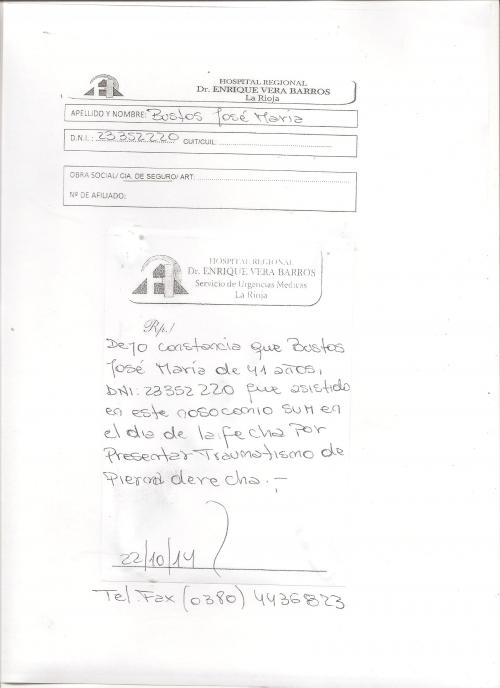 HOSPITAL REGIONAL
Dr. ENRIQUE VERA BARROS
La Rioja
APELLIDO Y NOMBRE: Bustos José María
D.N.I. : 23352220 CUIT/CUIL:
OBRA SOCIAL/ CIA. DE SEGURO/ ART:
Nº DE AFILIADO:
HOSPITAL REGIONAL
Dr. ENRIQUE VERA BARROS
Servicio de Urgencias Medicas
La Rioja
Rp./
Dejo constancia que Bustos
José María de 41 años,
DNI: 23352220 fue asistido
en este nosocomio SUM en
el dia de la fecha Por
Presentar Traumatismo de
Pierna derecha.-
22/10/14
Tel: Fax (0380) 4436823